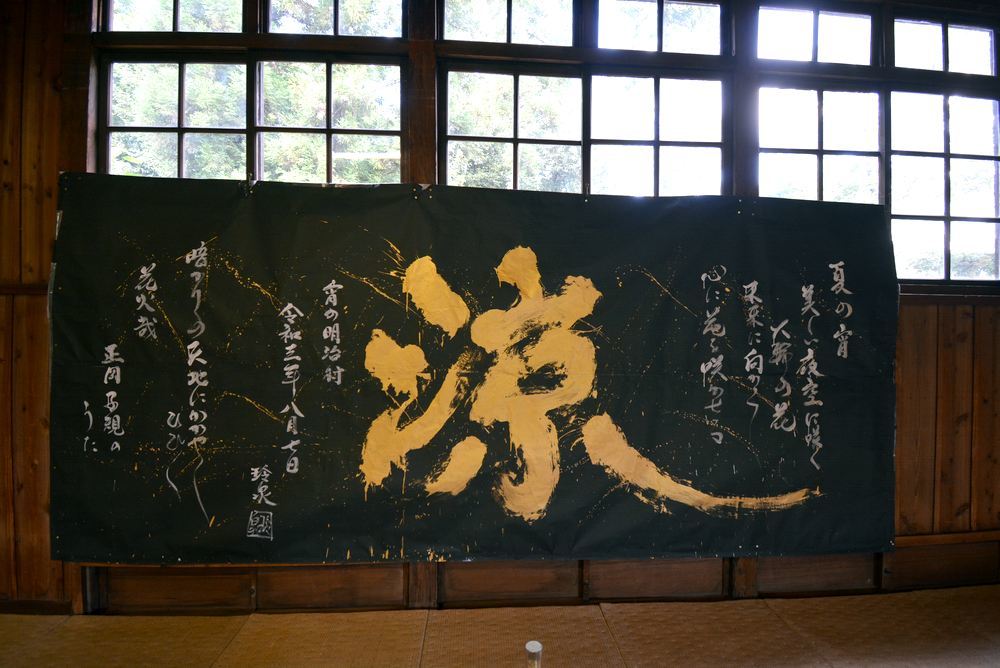 夏の宵
美しい夜空に咲く
大輪の花
未来に向かう
心に花を咲かせ
涼
宵の明治村
令和三年八月七日
玲泉
暗がりの天地にかがやく
ひびく
花火哉
正岡子規の
うた